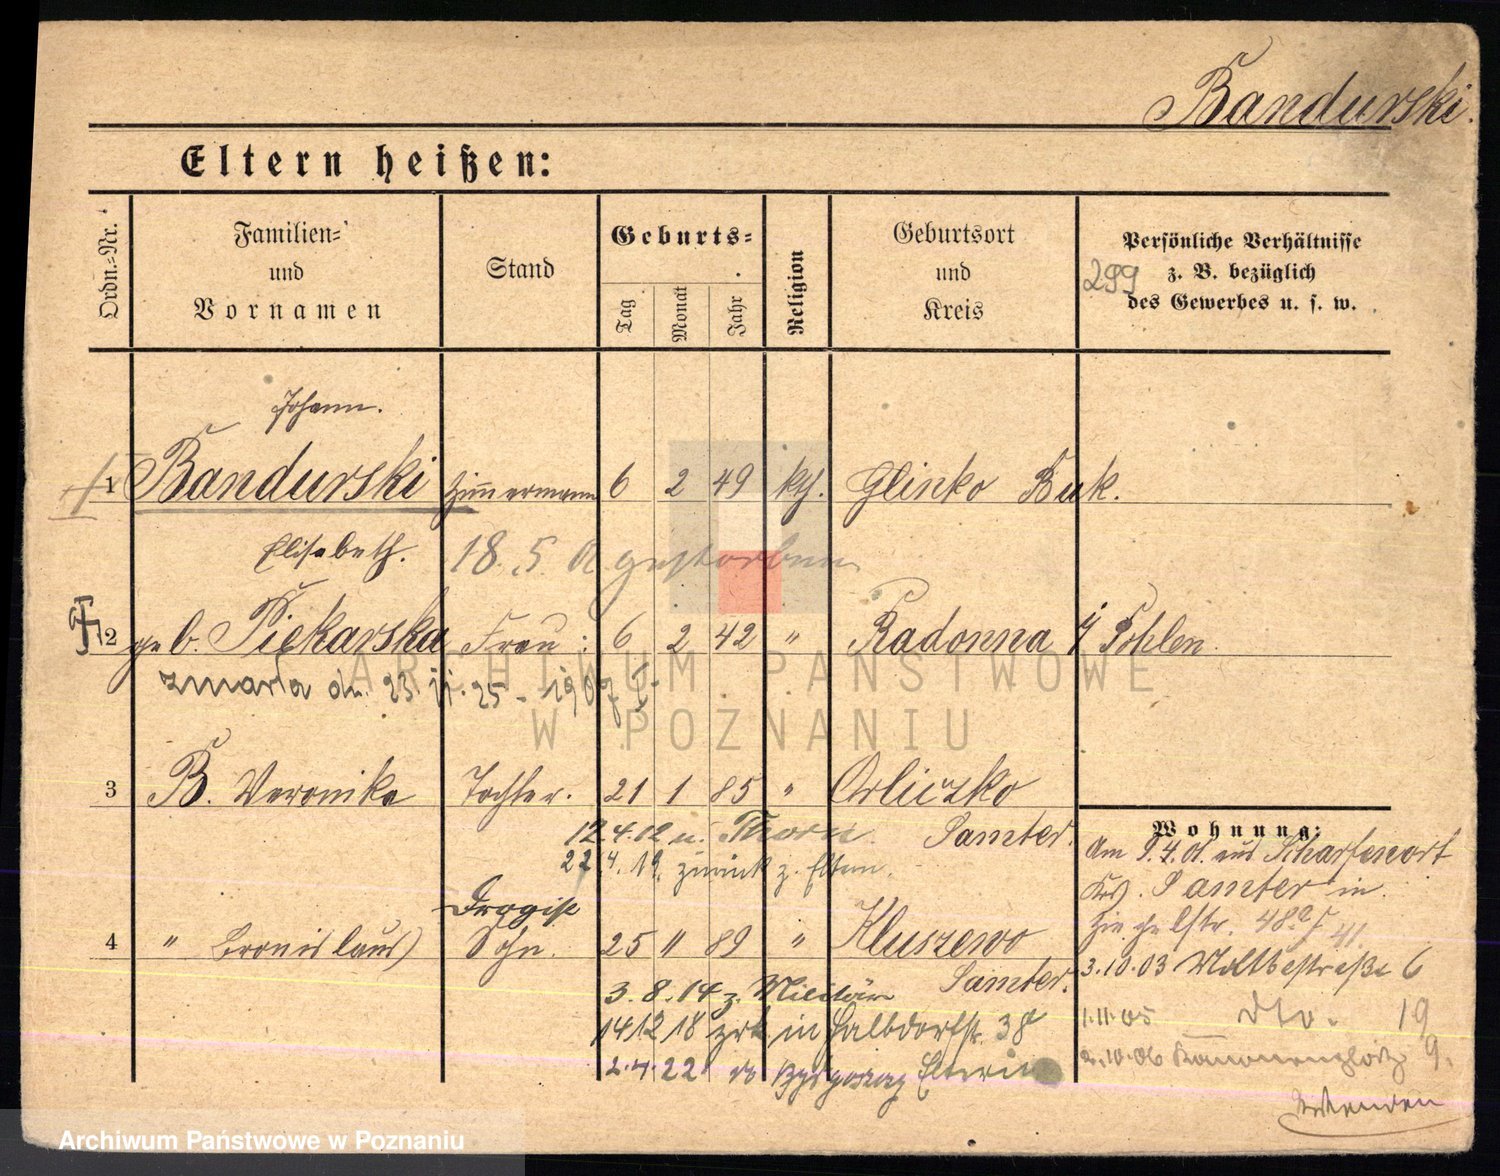 Bandurski.
Eltern heißen:
Ordn.-Nr.
Familien-
und
Vornamen
Stand
Geburts-
Tag
Monat
Jahr
Religion
Geburtsort
und
Kreis
Persönliche Verhältnisse
z. B. bezüglich
des Gewerbes u. s. w.
299
Johann.
1 Bandurski Zimmermann 6 2 49 kth. Glinko Buk.
Elisabeth. 18. 5. gestorben
2 geb. Piekarska Frau 6 2 42 " Radonna Pohlen.
zmarła dn. 23. 11. 25 -
3 B. Veronika Tochter. 21 1 85 " Orliczko
Samter.
12.4.12 n. Thorn.
22 4. 19. zurück z. Eltern.
Drogist
4 " Bronislaus Sohn. 25 11 89 " Kluszewo
Samter.
3. 8. 14 z. Militär
14 12 18 zrk in Halbdorfstr. 38
2.4.22 do Bydgoszcz
Wohnung:
Am 9.4.01. aus Scharfenort
Krs. Samter in
Ziegelstr. 48a
3.10.03 Moltkestraße 6
1.11.05 dto. 19
2.10.06 Kanonenplatz 9.
wenden
ARCHIWUM PAŃSTWOWE
W POZNANIU
Archiwum Państwowe w Poznaniu